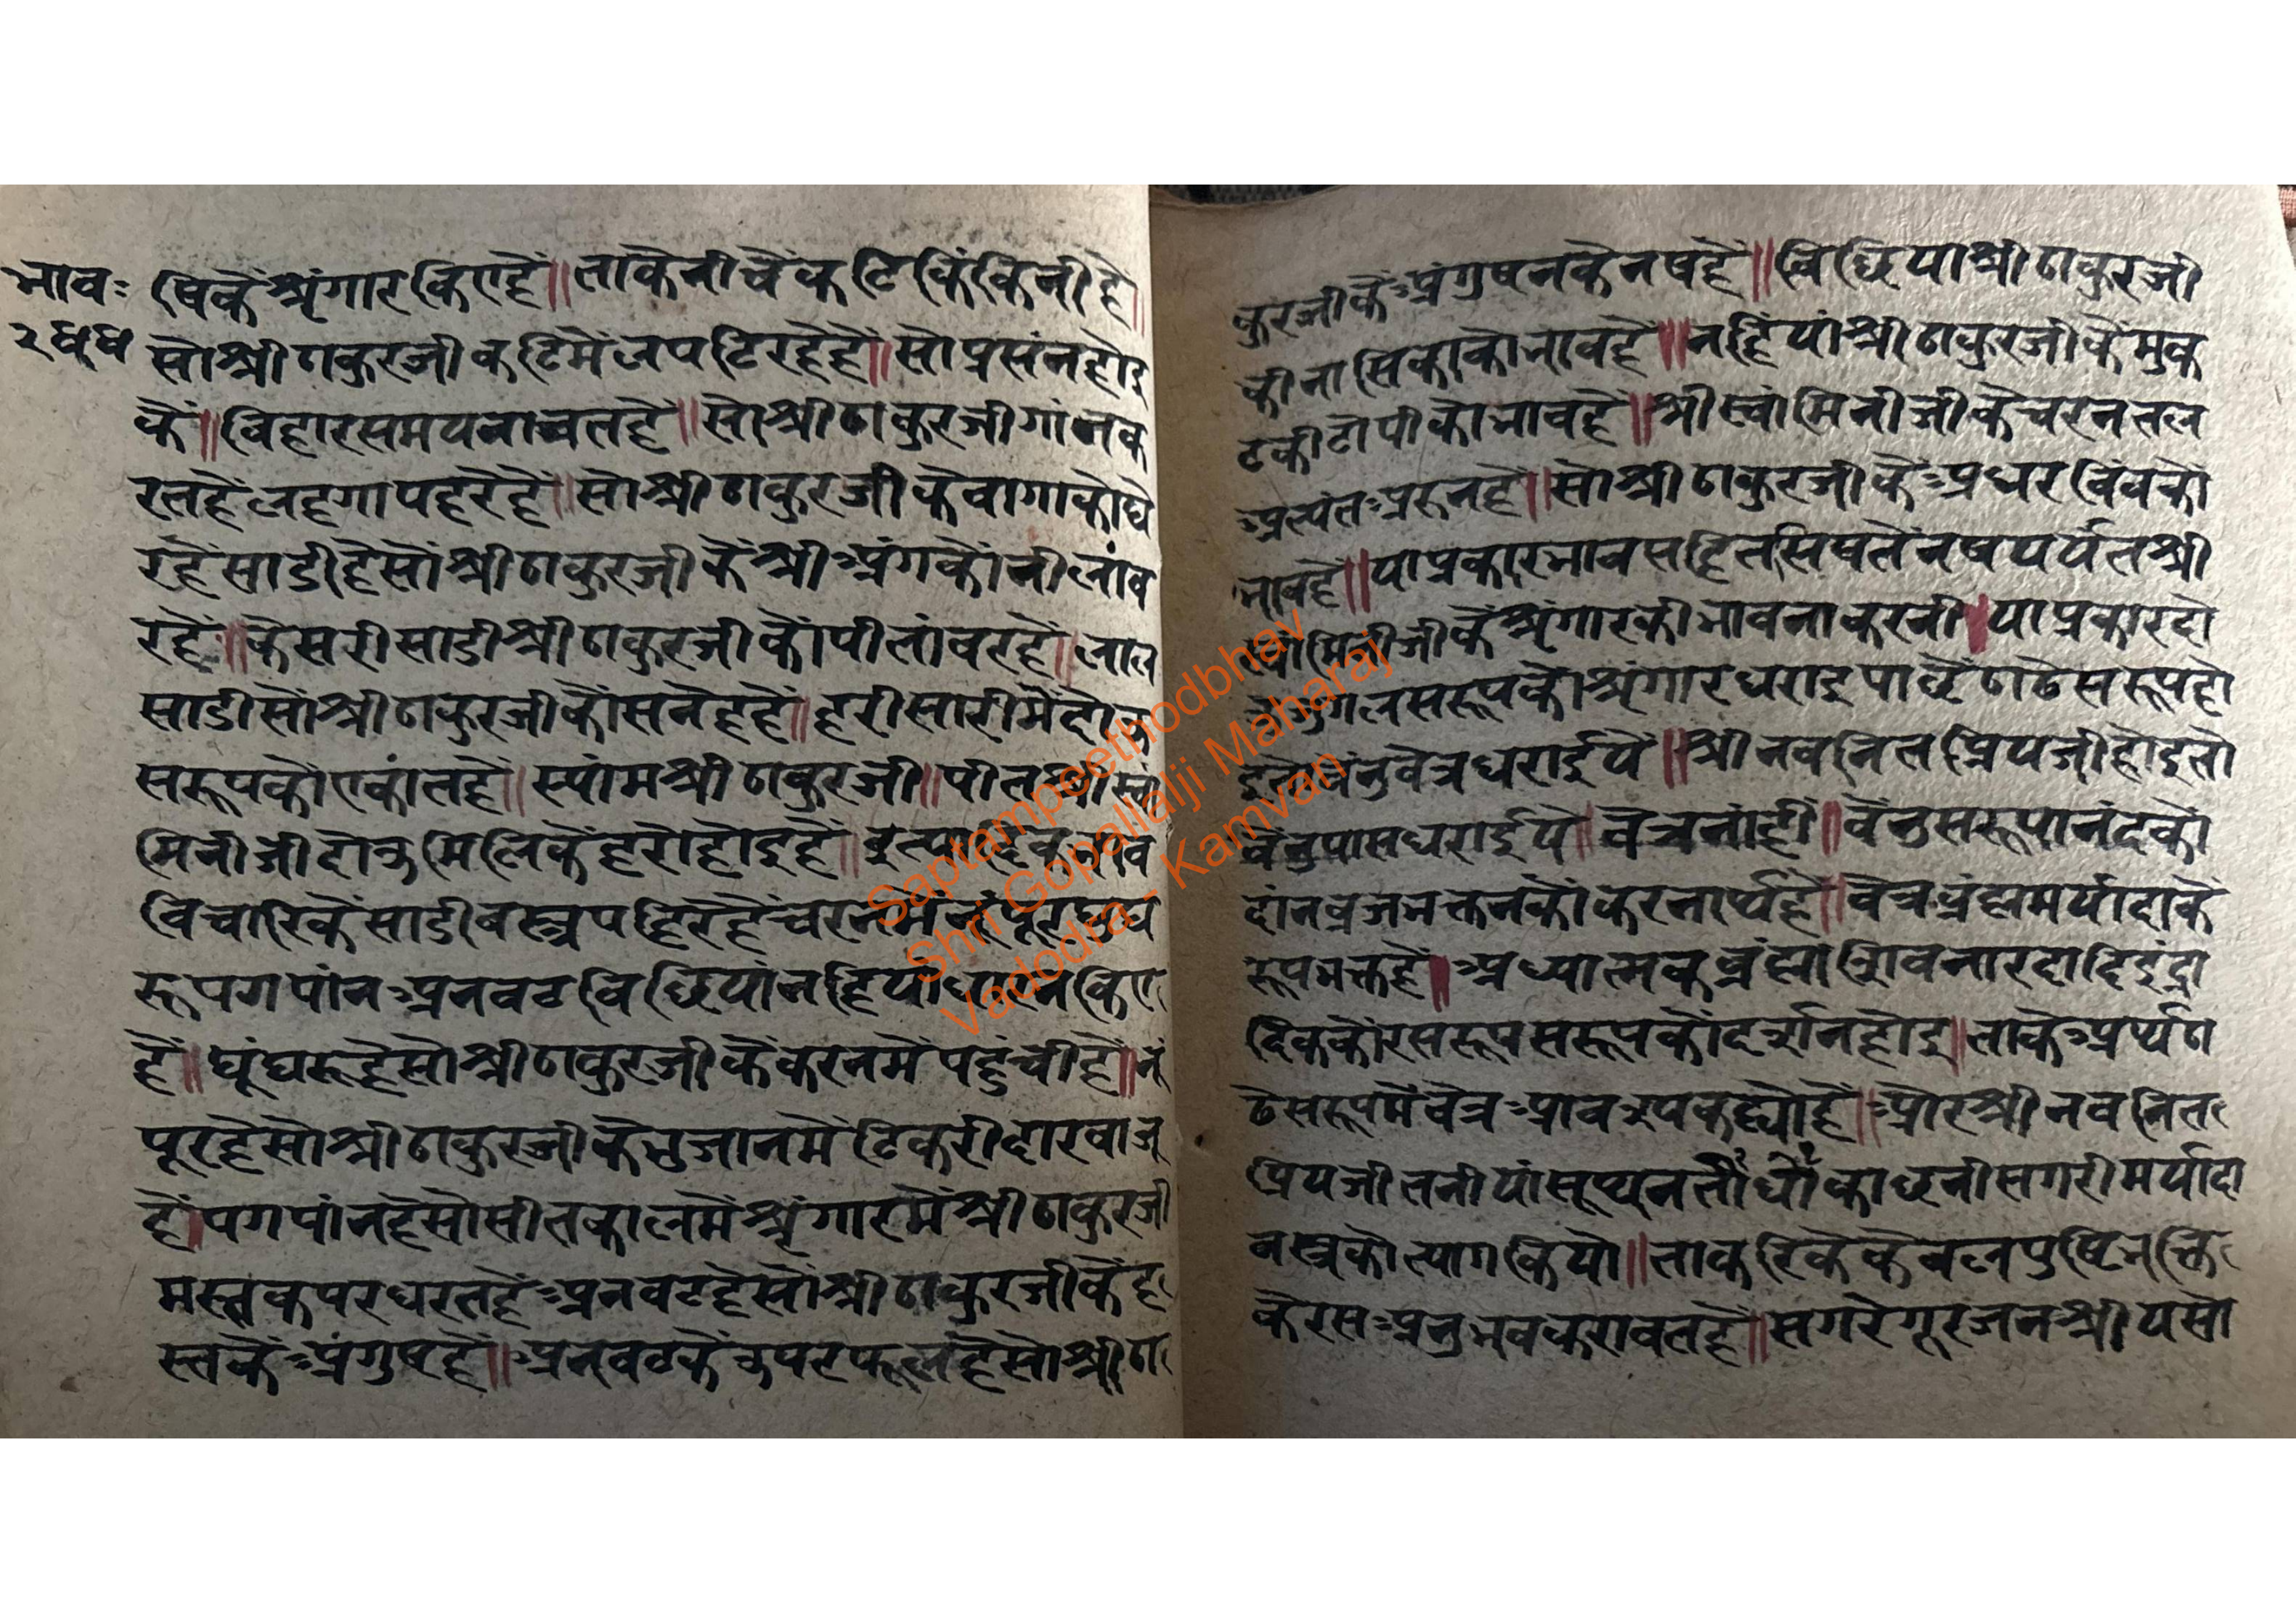 भावः
२४४
षिकैं श्रृंगार किए हैं॥ ताके नीचैं कटि किंकिनी हैं॥
सो श्री ठाकुरजी कटि मैं लपटि रहे हैं॥ सो प्रसंन होइ
कैं॥ विहार समय नाचत हैं॥ सो श्री ठाकुरजी गांन क
रत हैं लहगा पहरै हैं॥ सो श्री ठाकुरजी के वागा को घे
र हैं साडी है सो श्री ठाकुरजी कें श्री अंग कों नीलांव
र हैं॥ केसरी साडी श्री ठाकुरजी कों पीतांवर हैं॥ लाल
साडी सों श्री ठाकुरजी कों सनेह हैं॥ हरी सारी मैं दोऊ
सरूप कों एकांत हैं॥ स्यांम श्री ठाकुरजी॥ पीत श्री स्वां
मिनीजी दोऊ मिलिकें हरो होइ हैं॥ इत्यादिक भाव
विचारिकें साडी वस्त्र पहिरै हैं चरन मैं नूंपूर घुघ
रू पगपांन अनवट विछिया नहियां धारन किए
हैं॥ घूंघरू है सो श्री ठाकुरजी के करन मैं पहुंची हैं॥ नूं
पूर है सो श्री ठाकुरजी के भुजान मैं टिकरीदार वाजू
हैं। पगपांन है सो सीतकाल मैं श्रृंगार मैं श्री ठाकुरजी
मस्तक पर धरत हैं अनवट है सो श्री ठाकुरजी के ह
स्त कें अंगुष्ट हैं॥ अनवट कें उपर फूल है सो श्री ठा
कुरजी कें अंगुषन के नष हैं॥ विछिया श्री ठाकुरजी
की नासिका को भाव हैं॥ नहियां श्री ठाकुरजी कें मुक
ट की टोपी को भाव हैं॥ श्री स्वांमिनीजी के चरन तल
अत्यंत अरुन हैं॥ सो श्री ठाकुरजी कें अधर विंव को
भाव हैं॥ या प्रकार भाव सहित सिष तें नष पर्यंत श्री
स्वांमिनीजी के श्रृंगार की भावना करनी॥ या प्रकार दो
उ युगल सरूप को श्रृंगार धराइ पाछें ठाढे सरूप हो
इ तो वेंनु वेत्र धराईयै॥ श्री नवनित प्रियजी होइ तो
वेंनु पास धराईयै॥ वेत्र नांही॥ वेंनु सरूपानंद को
दांन व्रजभक्तन कों करनार्थ हैं॥ वेत्र व्रंह्म मर्यादा के
रूप भक्त हैं॥ अध्यात्मक व्रंह्मा शिव नारदादि इंद्रा
दिक कों रस रूप सरूप कों दर्शन होइ॥ ताके अर्थ ठा
ढे सरूप मैं वेत्र आवश्यक ह्यो हैं॥ और श्री नवनित
प्रियजी तनीयां सूथन तौ धौ काछनी सगरी मर्यादा
वस्त्र को त्याग कियो॥ ता करिके केवल पुष्टि भक्ति
के रस अनुभव करावत हैं॥ सगरे गूरजन श्री यसो